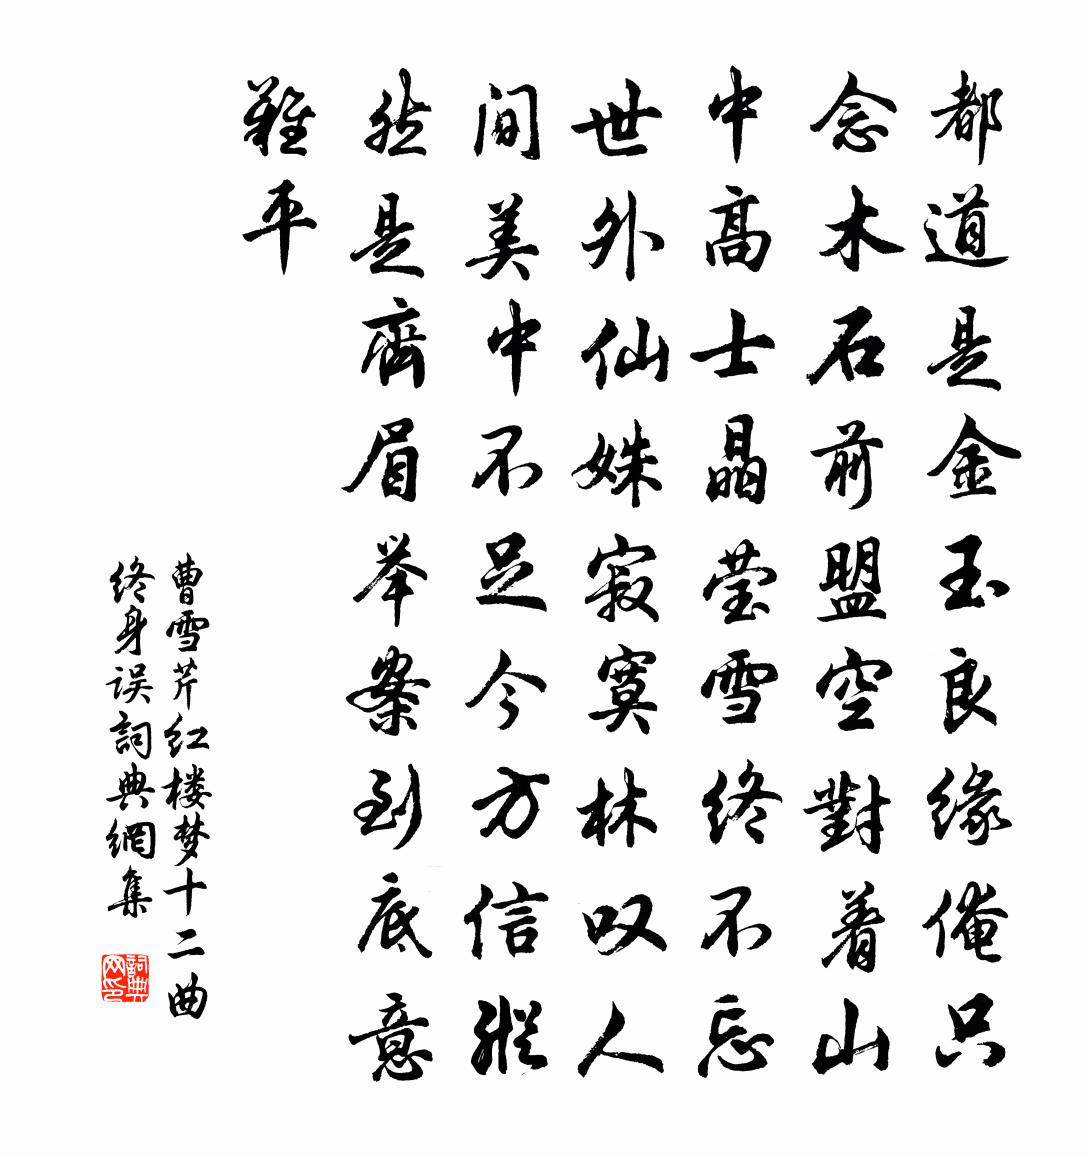 都道是金玉良缘俺只
念木石前盟空對着山
中高士晶莹雪终不忘
世外仙姝寂寞林叹人
間美中不足今方信縱
然是齊眉举案到底意
難平
曹雪芹红楼梦十二曲
终身误詞典網集
詞典
网印